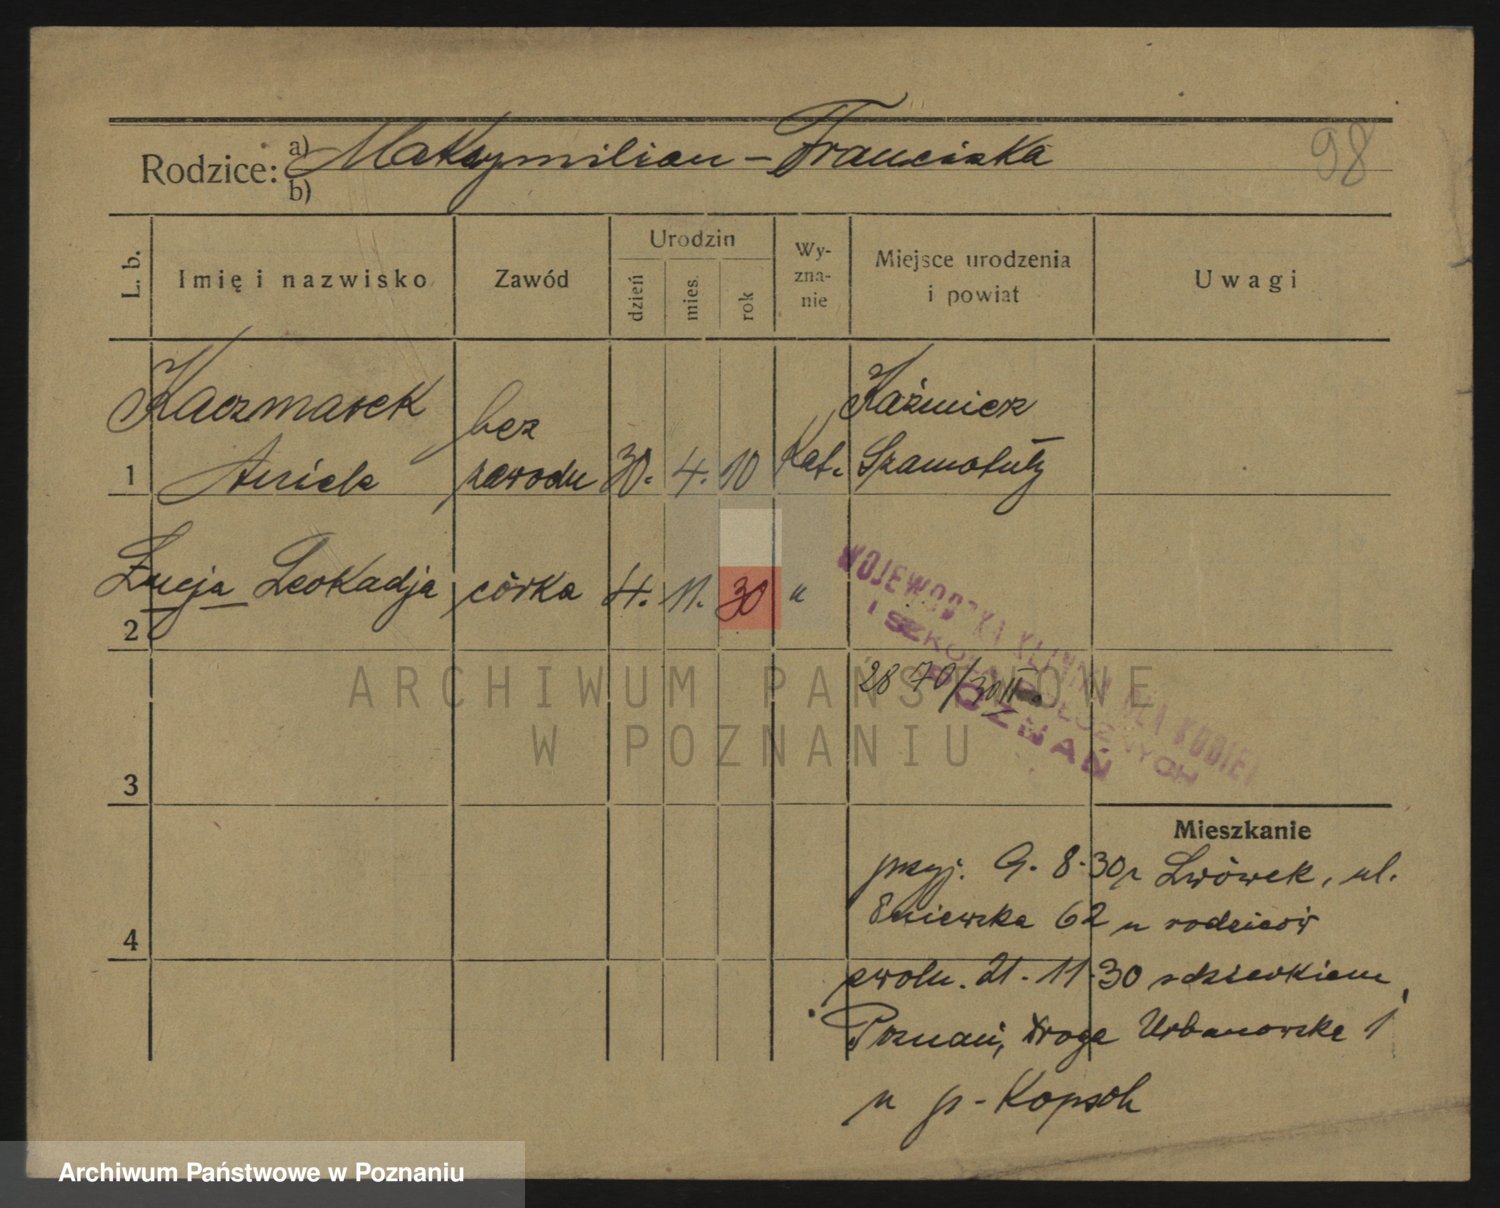 98
Rodzice: a) Maksymilian – Franciszka
b)
L. b.
Imię i nazwisko
Zawód
Urodzin
dzień
mies.
rok
Wy-
zna-
nie
Miejsce urodzenia
i powiat
Uwagi
Kaczmarek
bez
Kaźmierz
1 Aniela zawodu 30. 4. 10 Kat. Szamotuły
Łucja Leokadja córka 4. 11. 30 "
2
WOJEWÓDZKA KLINIKA DLA KOBIET
I SZKOŁA POŁOŻNYCH
POZNAŃ
2870/30
ARCHIWUM PAŃSTWOWE
W POZNANIU
3
Mieszkanie
przyj. 9. 8. 30 Lwówek, ul.
62 u rodziców
4
zwoln. 21. 11. 30 z dzieckiem
Poznań, Droga Urbanowska 1
u p. Kopsch
Archiwum Państwowe w Poznaniu